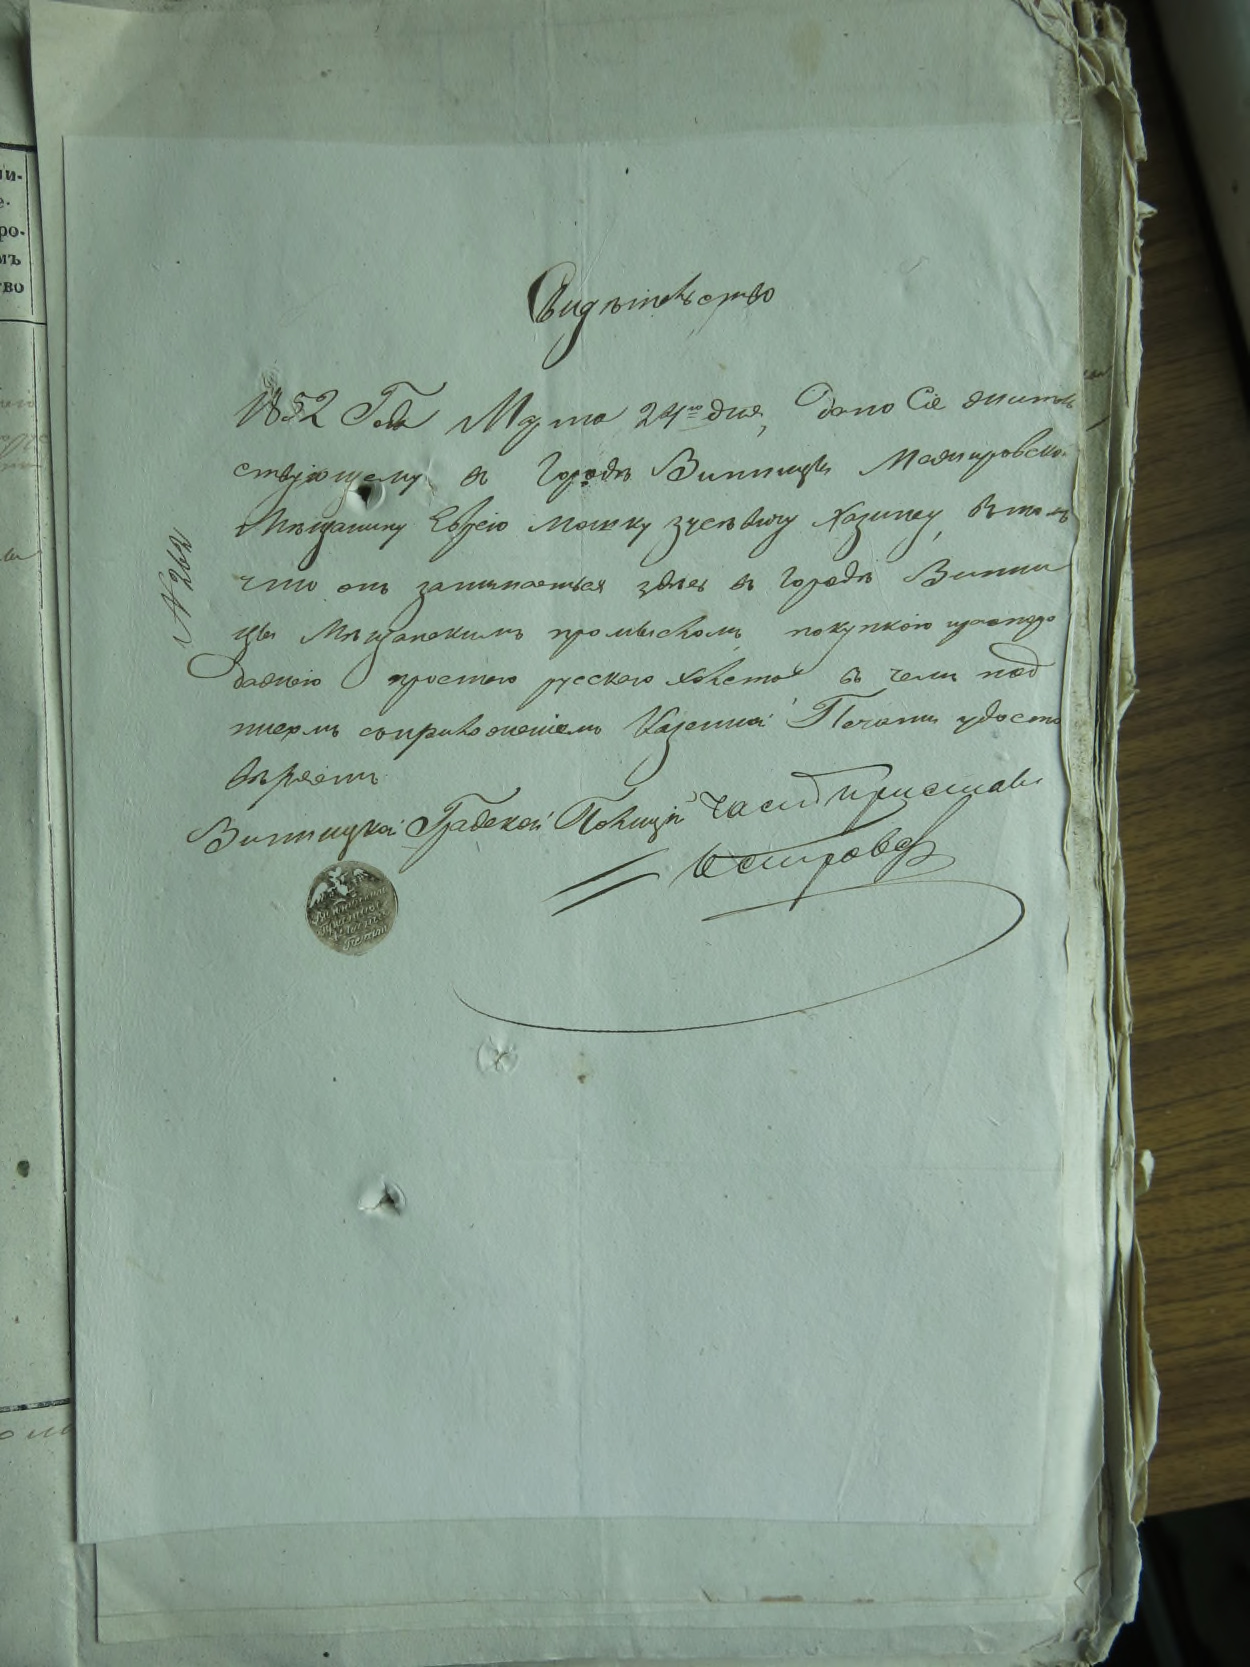 Свидѣтельство
1852 Года Марта 24го дня, дано Сіе жител
ствующему въ Городѣ Винницы Межировско
Мѣщанину Еврею Мошку Зусѣвичу Хазину, въ том
что онъ занимается здѣсъ въ Городѣ Винни
цы Мѣщанскимъ промысломъ покупкою и
дажею простого русского холста въ чемъ под
писомъ соприложениемъ Казенной Печати удосто
вѣряетъ
Винницкой Градской Полиціи Част Приставъ
Островс
№ 262
ни-
е-
ро-
мъ
тво